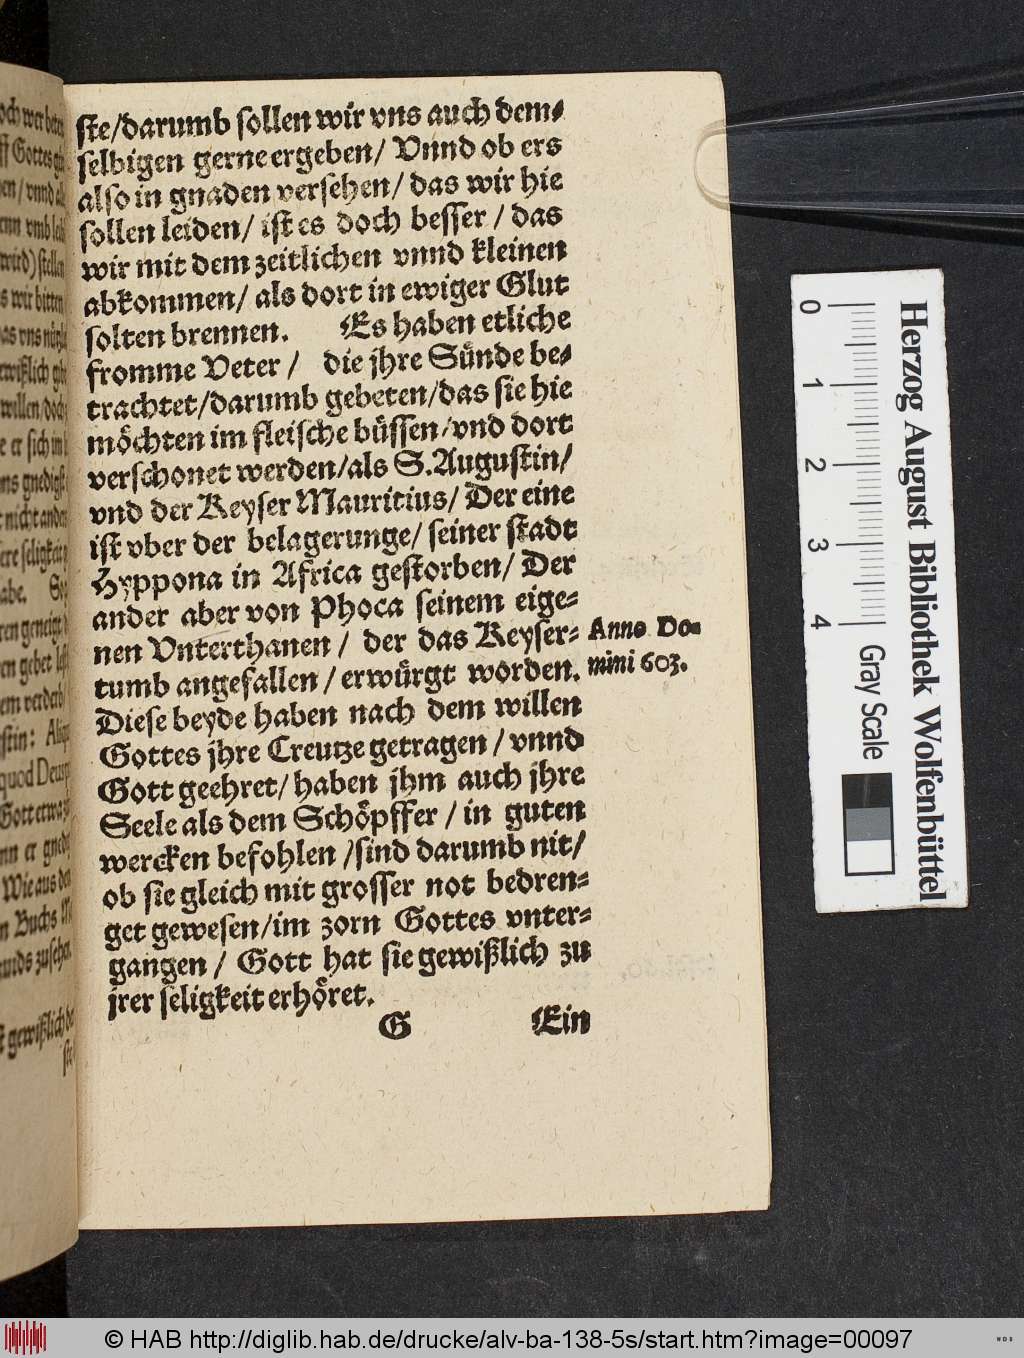 ste/darumb sollen wir vns auch dem-
selbigen gerne ergeben/ Vnnd ob ers
also in gnaden versehen/ das wir hie
sollen leiden/ ist es doch besser / das
wir mit dem zeitlichen vnnd kleinen
abkommen/ als dort in ewiger Glut
solten brennen. Es haben etliche
fromme Veter / die jhre Sünde be-
trachtet/darumb gebeten/das sie hie
möchten im fleische büssen/vnd dort
verschonet werden/als S.Augustin/
vnd der Keyser Mauritius/ Der eine
ist vber der belagerunge/ seiner stadt
Hyppona in Africa gestorben/ Der
ander aber von Phoca seinem eige-
nen Vnterthanen / der das Keyser-
tumb angefallen / erwürgt worden.
Anno Do-
mini 603.
Diese beyde haben nach dem willen
Gottes jhre Creutze getragen / vnnd
Gott geehret/ haben jhm auch jhre
Seele als dem Schöpffer / in guten
wercken befohlen /sind darumb nit/
ob sie gleich mit grosser not bedren-
get gewesen/im zorn Gottes vnter-
gangen / Gott hat sie gewißlich zu
jrer seligkeit erhöret.
G Ein
0 1 2 3 4
Gray Scale
Herzog August Bibliothek Wolfenbüttel
© HAB http://diglib.hab.de/drucke/alv-ba-138-5s/start.htm?image=00097